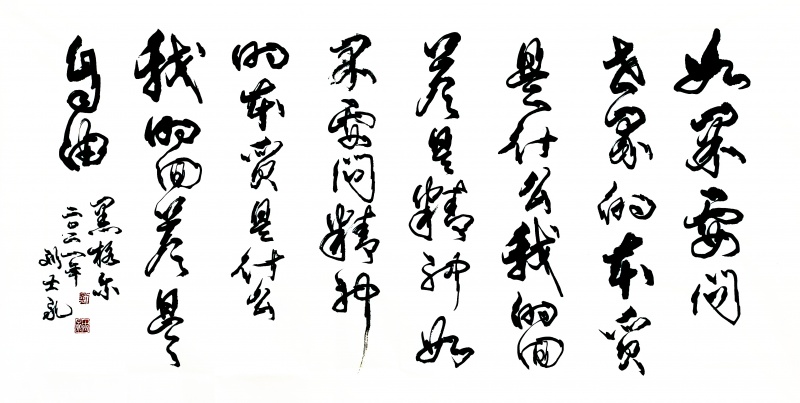 如果要问
世界的本质
是什么我的回
答是精神如
果要问精神
的本质是什么
我的回答是
自由
黑格尔
二〇二一年